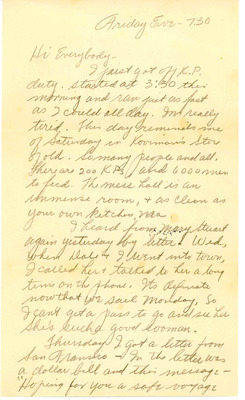 Friday Eve - 7:30
Hi Everybody -
I just got off K.P.
duty. started at 3:30 this
morning and ran just as fast
as I could all day. Im really
tired. This day reminds me
of Saturday in Stor
of old. So many people and all.
Ther are 200 K.P.s and 6000 men
to feed. The mess hall is an
immense room, & as clean as
your own kitchen, Ma.
I heard from Mary Stuart
again yesterday by letter. Wed,
when Dale & I went into town,
I called her & talked to her a long
time on the phone. Its definate
now that we sail Monday, So
I cant get a pass to go and see her
She's such a good woman.
Thursday I got a letter from
San Fransico - In the letter was
a dollar bill and this message -
"Hoping for you a safe voyage